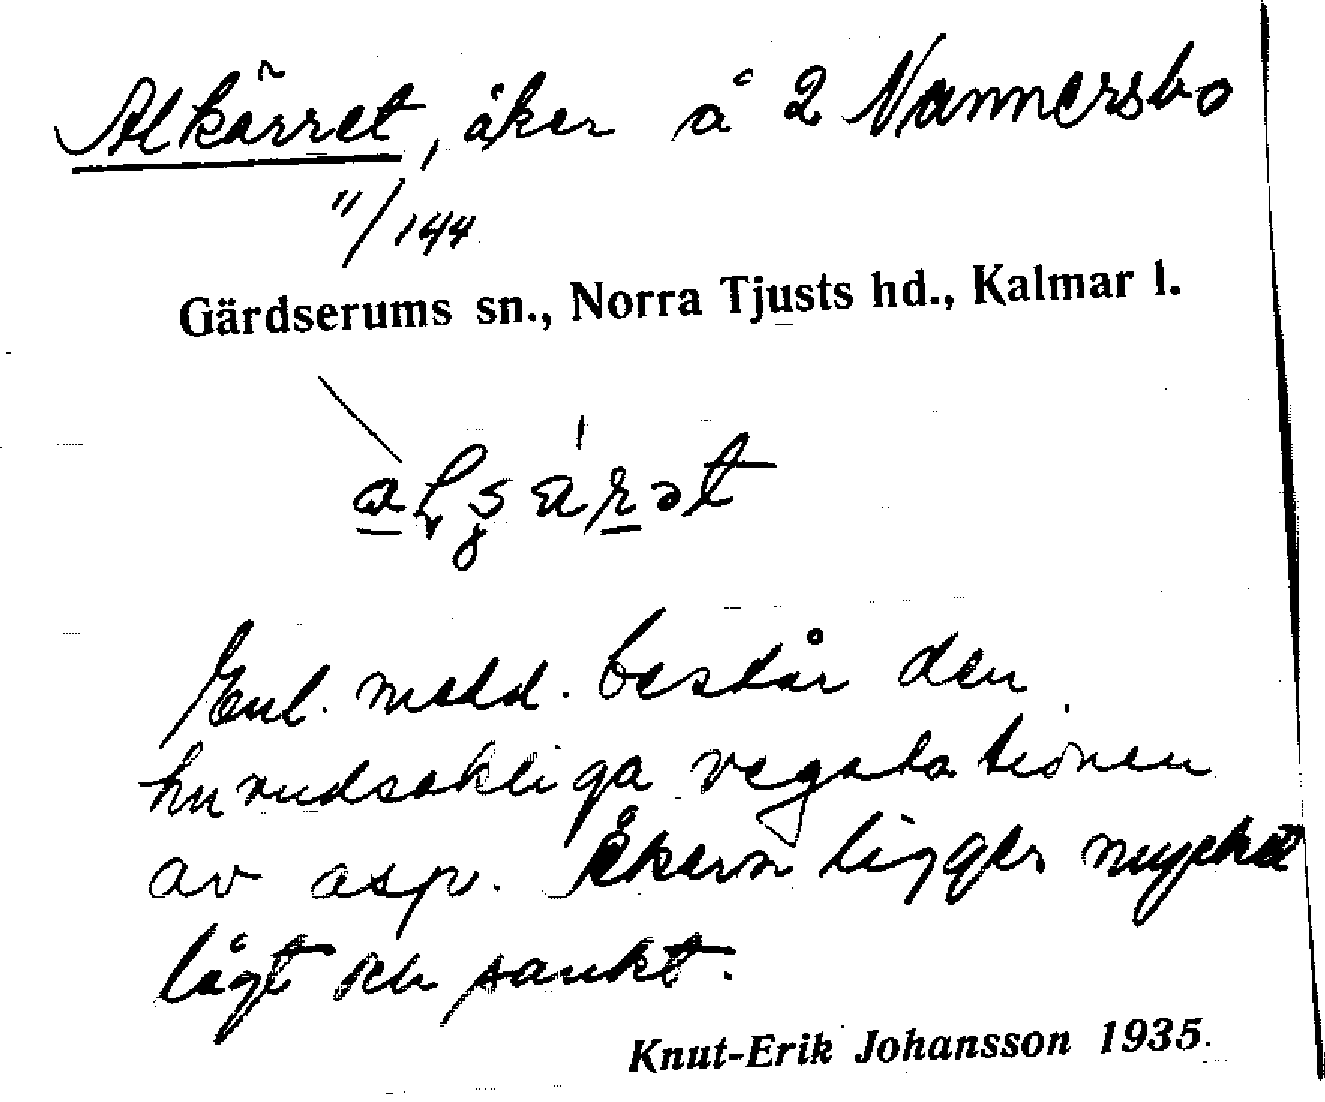 Alkärret, åker å 2 Nannersbo
11/144
Gärdserums sn., Norra Tjusts hd., Kalmar l.
Enl. medd. består den
huvudsakliga vegetationen
av asp. Åkern ligger mycket
lågt och sankt.
Knut-Erik Johansson 1935.